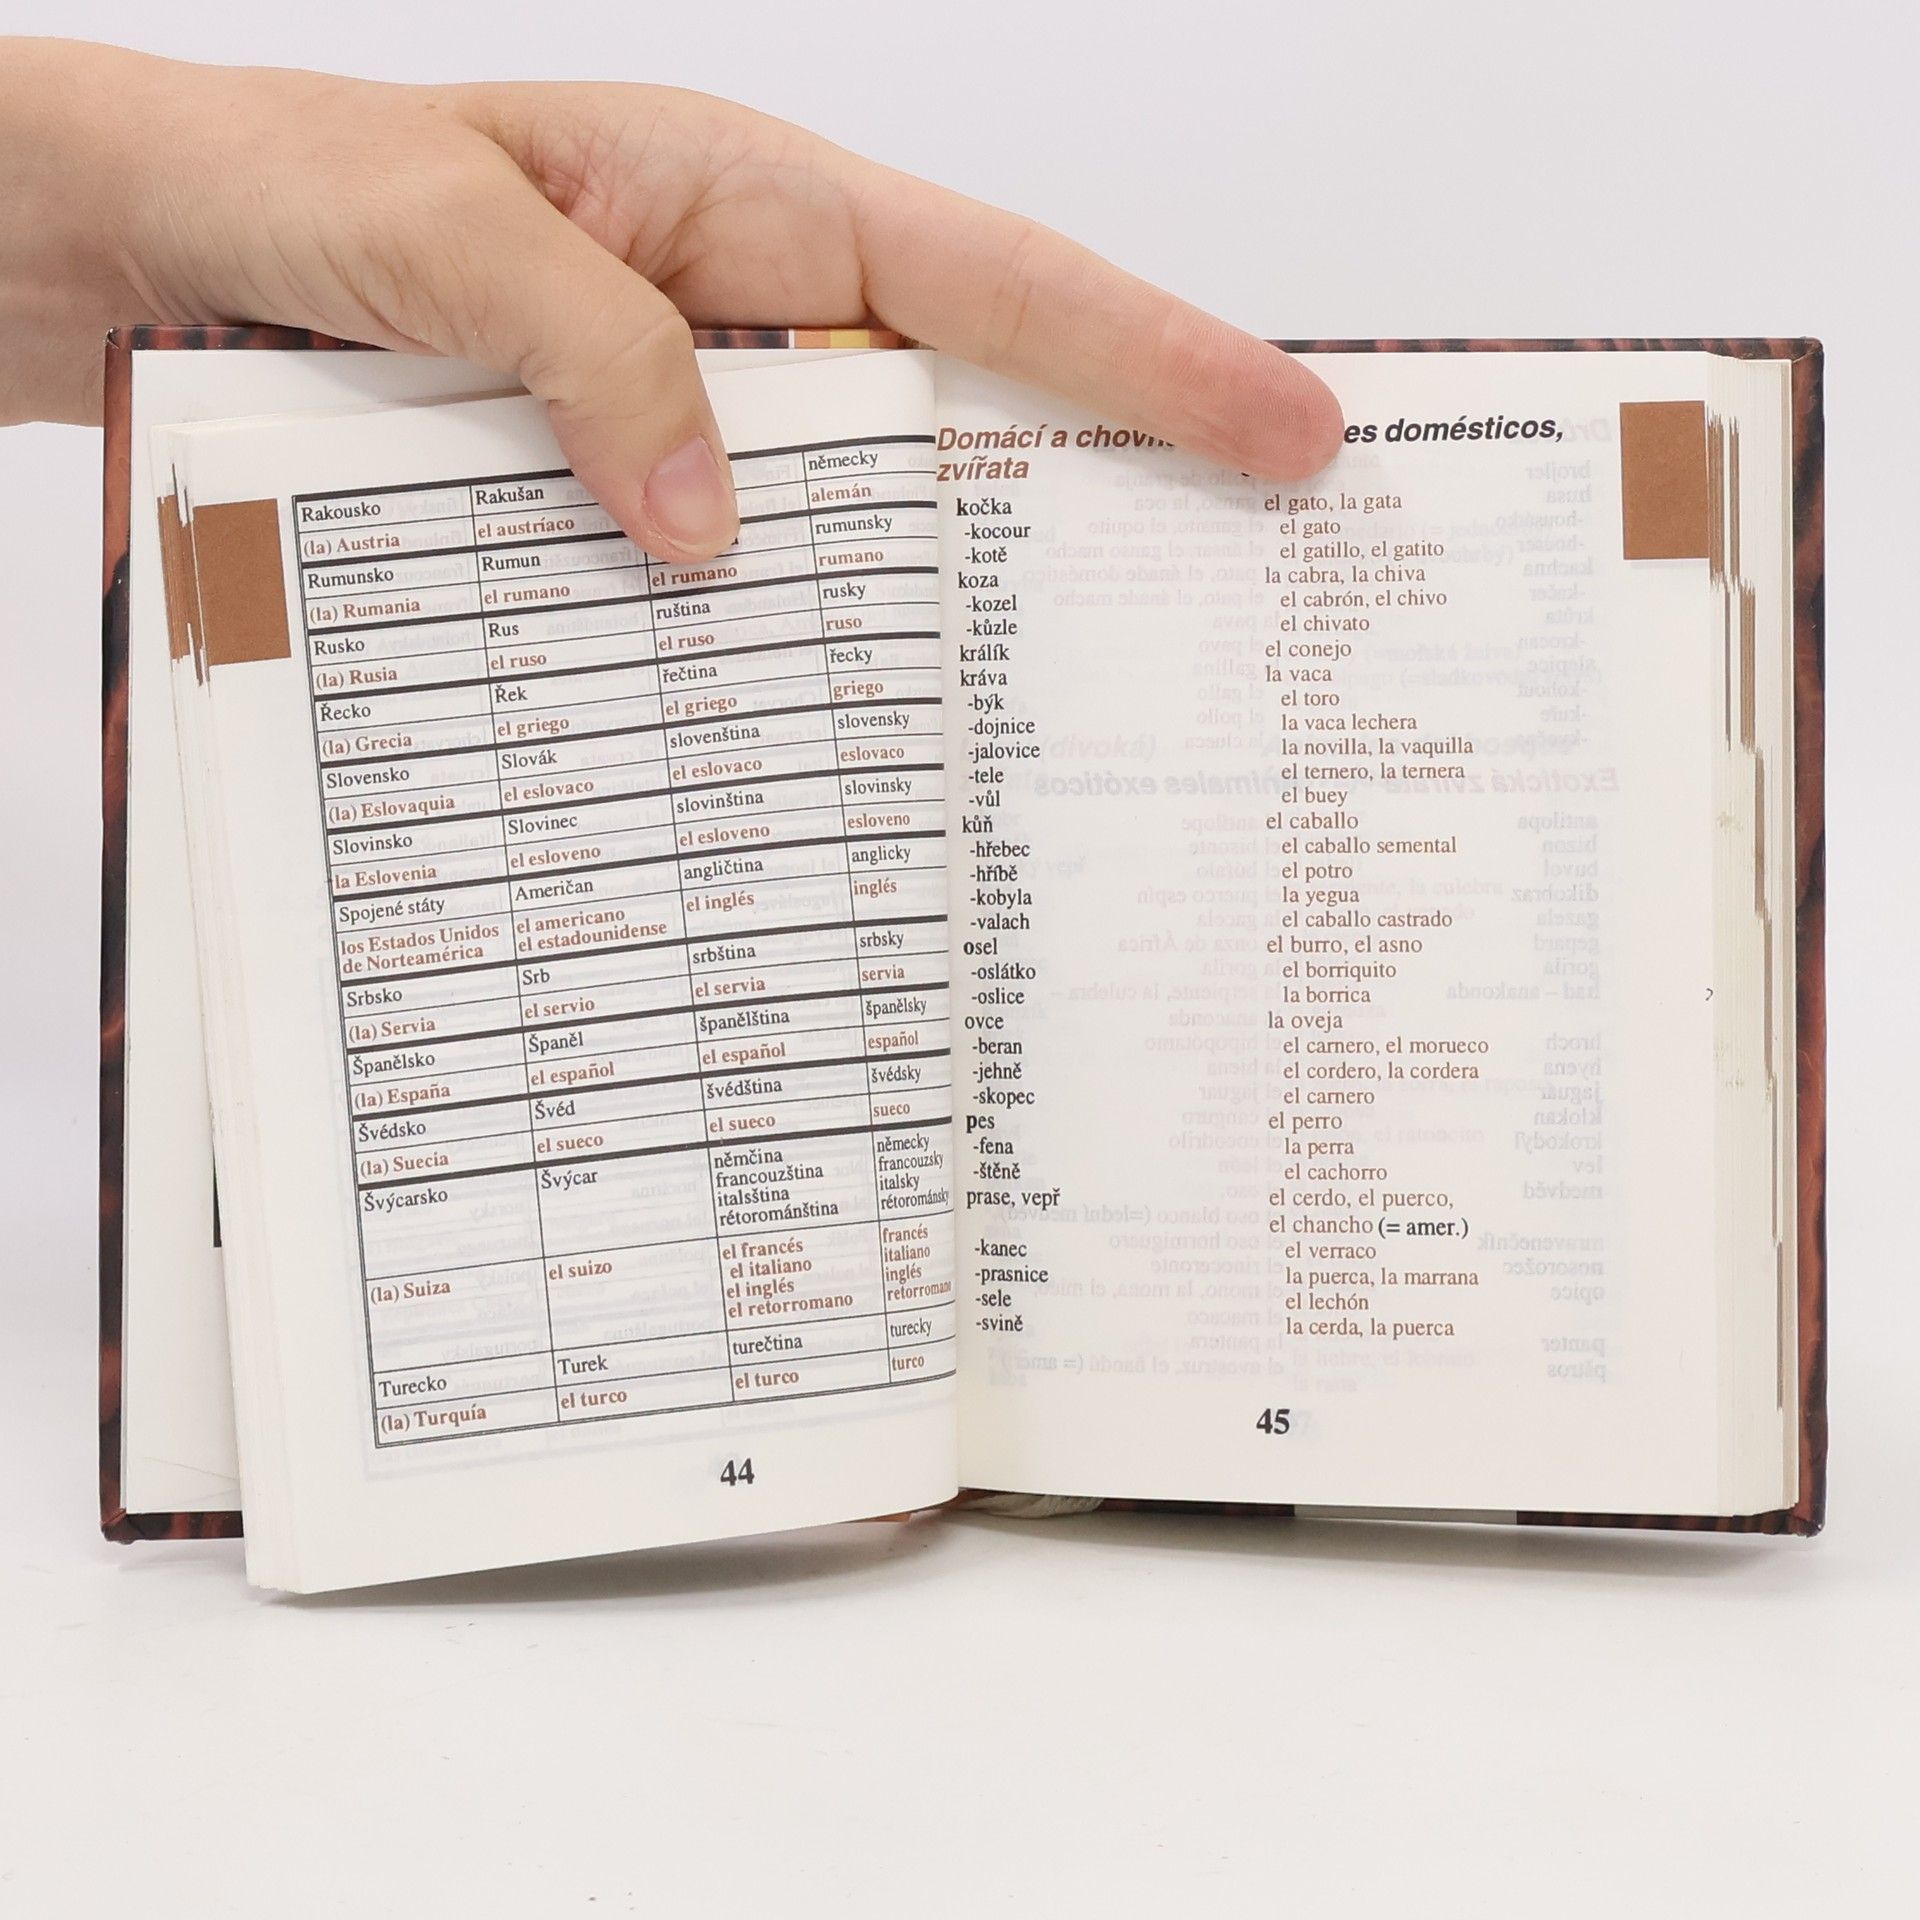 německy
Rakousko Rakušan alemán
(la) Austria el austríaco rumunsky
Rumunsko Rumun el rumano rumano
(la) Rumania el rumano ruština rusky
Rusko Rus el ruso ruso
(la) Rusia el ruso řečtina řecky
Řecko Řek el griego griego
(la) Grecia el griego slovenština slovensky
Slovensko Slovák el eslovaco eslovaco
(la) Eslovaquia el eslovaco slovinština slovinsky
Slovinsko Slovinec el esloveno esloveno
la Eslovenia el esloveno angličtina anglicky
Spojené státy Američan el inglés inglés
los Estados Unidos el americano
de Norteamérica el estadounidense
srbština srbsky
Srbsko Srb el servia servia
(la) Servia el servio španělština španělsky
Španělsko Španěl el español español
(la) España el español švédština švédsky
Švédsko Švéd el sueco sueco
(la) Suecia el sueco
Švýcarsko Švýcar němčina německy
francouzština francouzsky
italsština italsky
rétorománština rétorománsky
(la) Suiza el suizo el francés francés
el italiano italiano
el inglés inglés
el retorromano retorromano
Turecko Turek turečtina turecky
(la) Turquía el turco el turco turco
44
Domácí a
zvířata
es domésticos,
kočka el gato, la gata
-kocour el gato
-kotě el gatillo, el gatito
koza la cabra, la chiva
-kozel el cabrón, el chivo
-kůzle el chivato
králík el conejo
kráva la vaca
-býk el toro
-dojnice la vaca lechera
-jalovice la novilla, la vaquilla
-tele el ternero, la ternera
-vůl el buey
kůň el caballo
-hřebec el caballo semental
-hříbě el potro
-kobyla la yegua
-valach el caballo castrado
osel el burro, el asno
-oslátko el borriquito
-oslice la borrica
ovce la oveja
-beran el carnero, el morueco
-jehně el cordero, la cordera
-skopec el carnero
pes el perro
-fena la perra
-štěně el cachorro
prase, vepř el cerdo, el puerco,
el chancho (= amer.)
-kanec el verraco
-prasnice la puerca, la marrana
-sele el lechón
-svině la cerda, la puerca
45